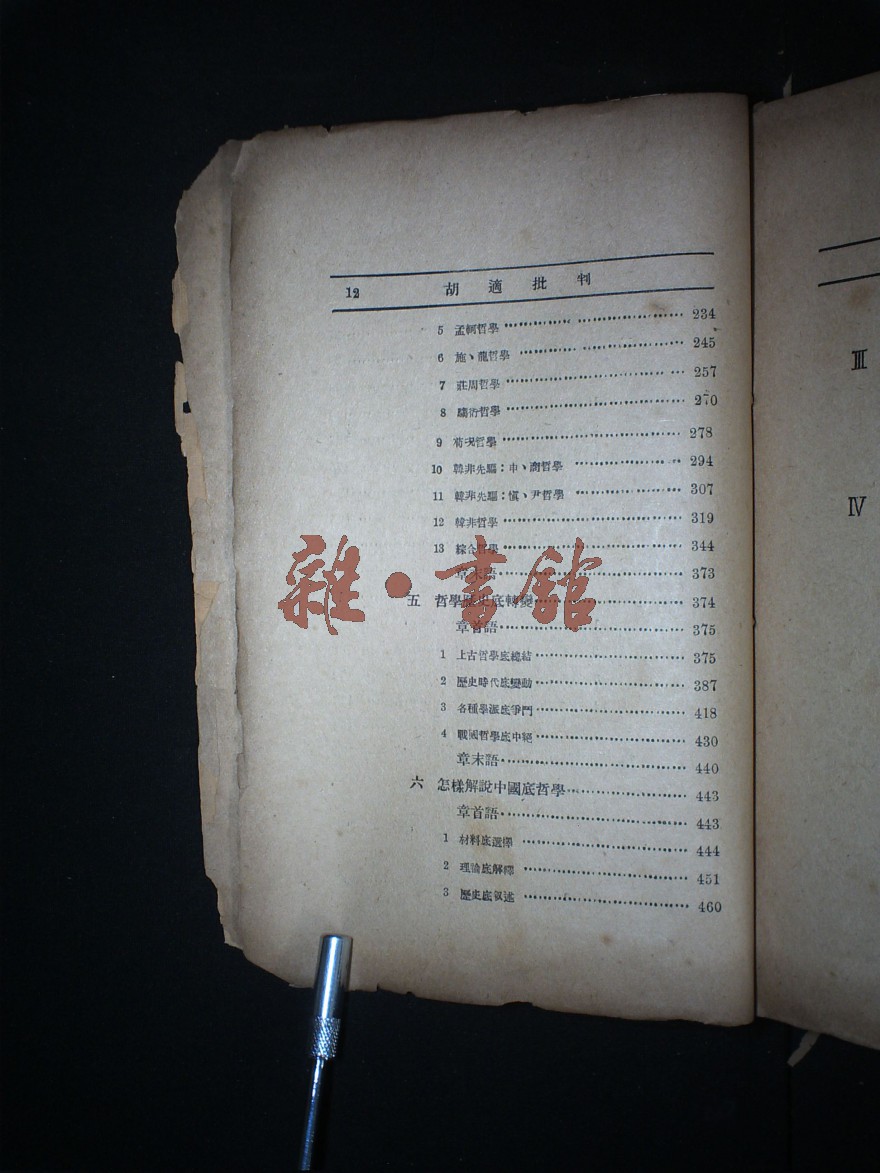 12 胡適批判
5 孟軻哲學 234
6 施、龍哲學 245
7 莊周哲學 257
8 騶衍哲學 270
9 荀況哲學 278
10 韓非先驅：申、商哲學 294
11 韓非先驅：愼、尹哲學 307
12 韓非哲學 319
13 綜合哲學 344
章末語 373
五 哲學歷史底轉變 374
章首語 375
1 上古哲學底總結 375
2 歷史時代底變動 387
3 各種學派底爭鬥 418
4 戰國哲學底中範 430
章末語 440
六 怎樣解說中國底哲學 443
章首語 443
1 材料底選擇 444
2 理論底解釋 451
3 歷史底叙述 460
III
IV
雜·書館